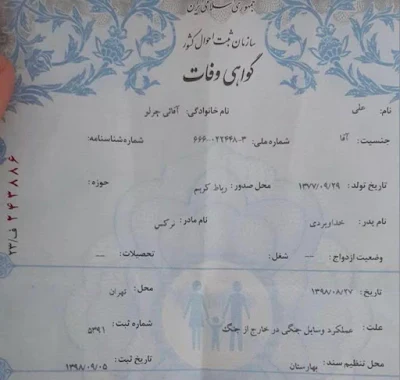 جمهوری اسلامی ایران
سازمان ثبت احوال کشور
گواهی وفات
نام: علی نام خانوادگی: آقائی چرلر
جنسیت: آقا شماره ملی: ۶۶۶۰۰۲۲۴۴۸-۳ شماره شناسنامه:
تاریخ تولد: ۱۳۷۷/۰۹/۲۹ محل صدور: رباط کریم حوزه:
نام پدر: خداویردی نام مادر: نرگس
وضعیت ازدواج: — شغل: تحصیلات: —
تاریخ: ۱۳۹۸/۰۸/۲۷ محل: تهران
علت: عملکرد وسایل جنگی در خارج از جنگ شماره ثبت: ۵۳۹۱
محل تنظیم سند: بهارستان تاریخ ثبت: ۱۳۹۸/۰۹/۰۵
ف/۲۳ ۲۴۳۸۸۶